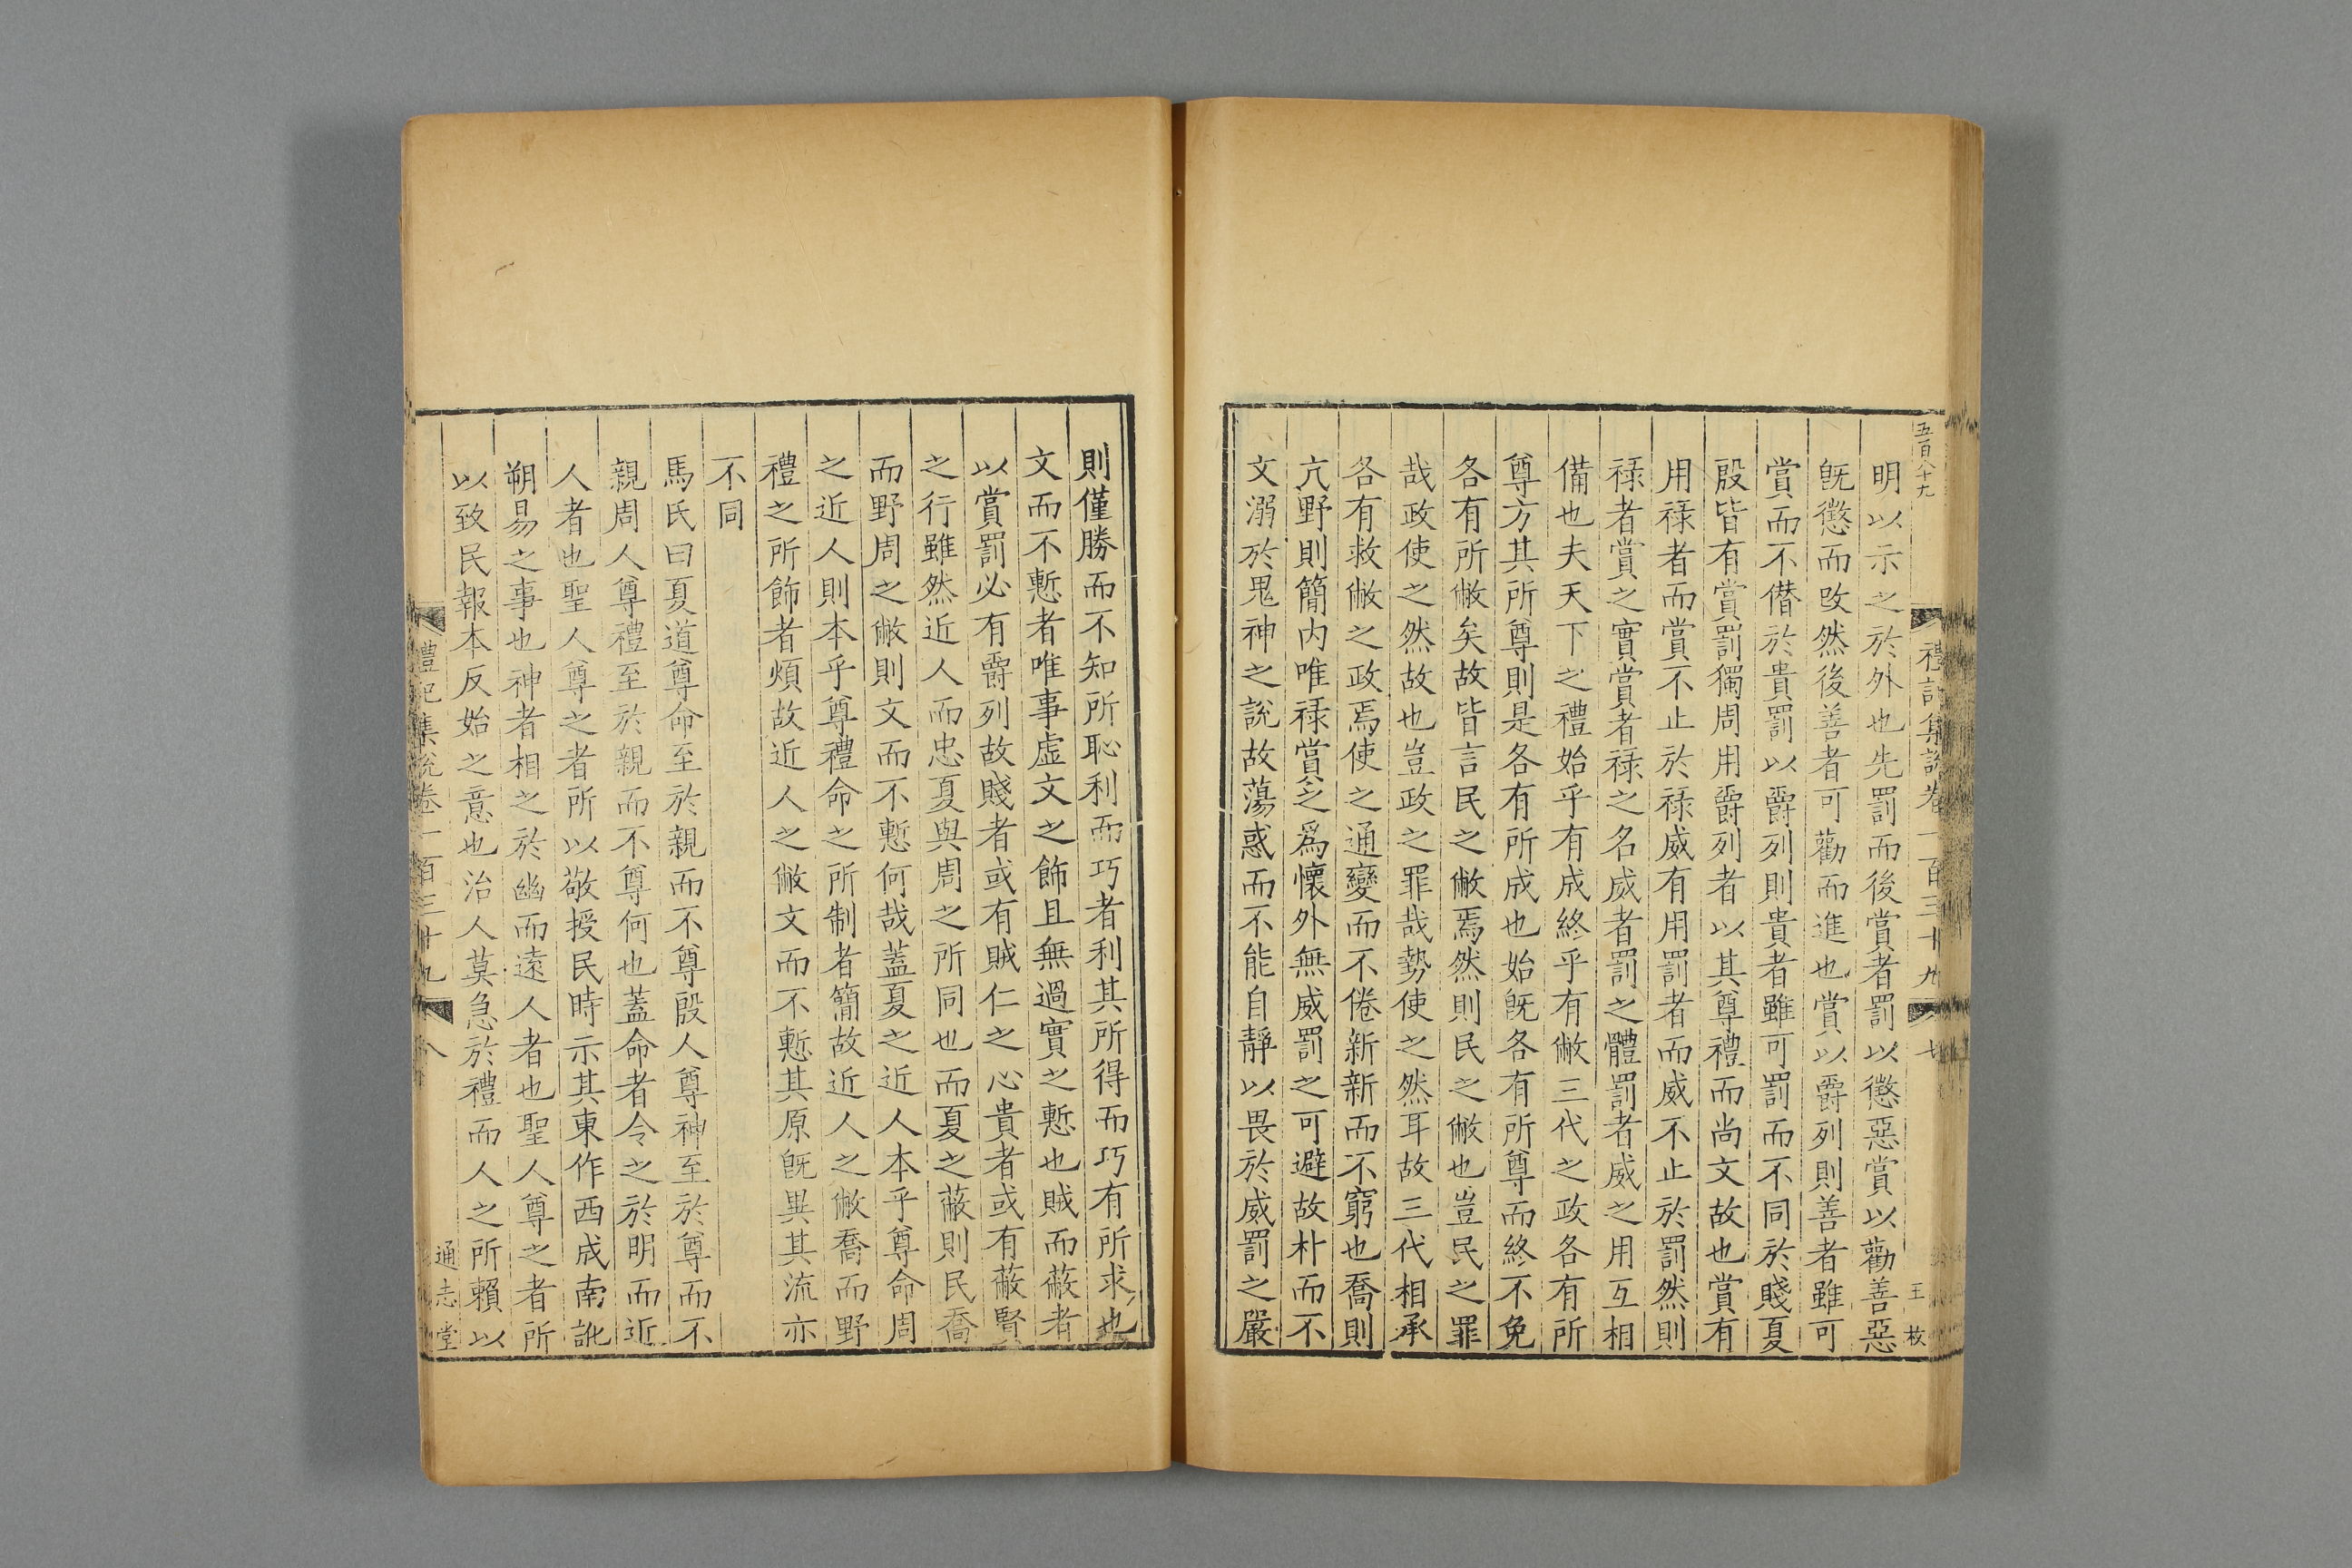 五百八十九
禮記集說卷一百三十九
七
王 枚
明以示之於外也先罰而後賞者罰以懲惡賞以勸善惡
旣懲而改然後善者可勸而進也賞以爵列則善者雖可
賞而不僭於貴罰以爵列則貴者雖可罰而不同於賤夏
殷皆有賞罰獨周用爵列者以其尊禮而尚文故也賞有
用祿者而賞不止於祿威有用罰者而威不止於罰然則
祿者賞之實賞者祿之名威者罰之體罰者威之用互相
備也夫天下之禮始乎有成終乎有敝三代之政各有所
尊方其所尊則是各有所成也始旣各有所尊而終不免
各有所敝矣故皆言民之敝焉然則民之敝也豈民之罪
哉政使之然故也豈政之罪哉勢使之然耳故三代相承
各有救敝之政焉使之通變而不倦新新而不窮也喬則
亢野則簡内唯祿賞之爲懷外無威罰之可避故朴而不
文溺於鬼神之說故蕩惑而不能自靜以畏於威罰之嚴
則僅勝而不知所恥利而巧者利其所得而巧有所求也
文而不慙者唯事虛文之飾且無過實之慙也賊而蔽者
以賞罰必有爵列故賤者或有賊仁之心貴者或有蔽賢
之行雖然近人而忠夏與周之所同也而夏之蔽則民喬
而野周之敝則文而不慙何哉蓋夏之近人本乎尊命周
之近人則本乎尊禮命之所制者簡故近人之敝喬而野
禮之所飾者煩故近人之敝文而不慙其原旣異其流亦
不同
馬氏曰夏道尊命至於親而不尊殷人尊神至於尊而不
親周人尊禮至於親而不尊何也蓋命者令之於明而近
人者也聖人尊之者所以敬授民時示其東作西成南訛
朔易之事也神者相之於幽而遠人者也聖人尊之者所
以致民報本反始之意也治人莫急於禮而人之所賴以
禮記集說卷一百三十九
八
通志堂